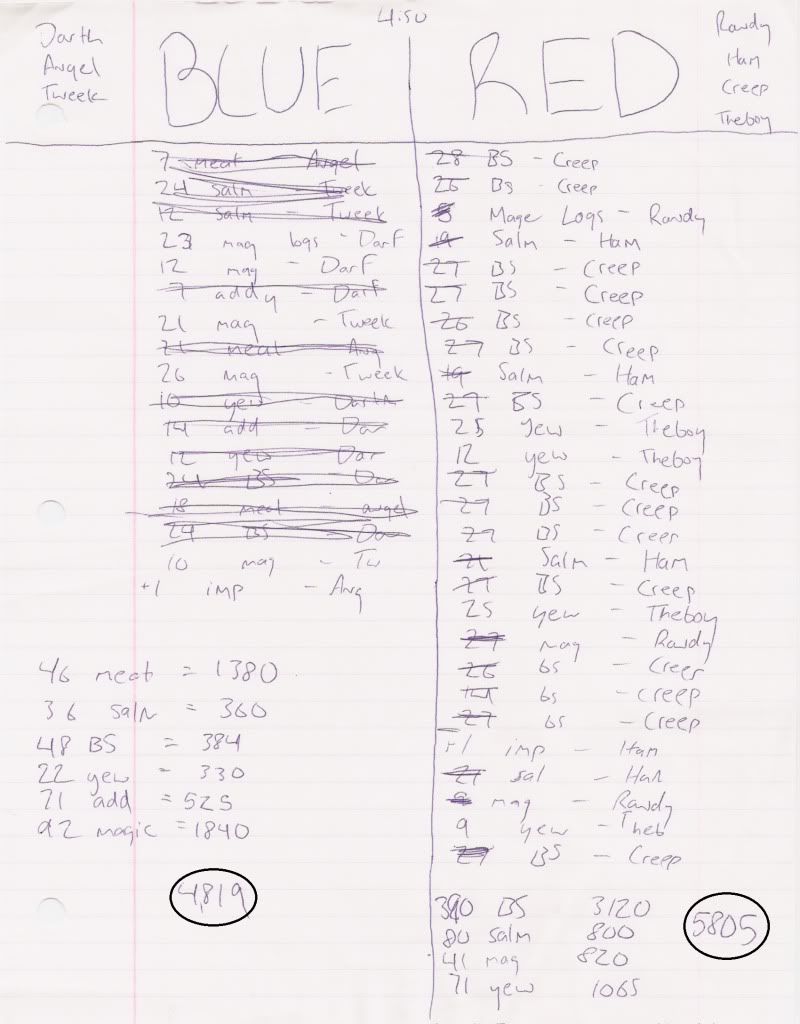 4:50
Darth
Angel
Tweek
BLUE
RED
Rawdy
Ham
Creep
Theboy
7 meat - Angel
24 salm - Tweek
12 Salm - Tweek
23 mag logs - Darf
12 mag - Darf
7 addy - Darf
21 mag - Tweek
21 meat - Ang
26 mag - Tweek
10 yew - Darth
14 add - Dar
12 yew Dar
24 BS - Da
18 meat - angel
24 BS - Da
10 mag - Tw
+1 imp - Ang
46 meat = 1380
36 salm = 360
48 BS = 384
22 yew = 330
21 add = 525
92 magic = 1840
4,819
28 BS - Creep
26 BS - Creep
Mage Logs - Rawdy
19 Salm - Ham
27 BS - Creep
27 BS - Creep
26 BS - Creep
27 BS - Creep
19 Salm - Ham
27 BS - Creep
25 Yew - Theboy
12 yew - Theboy
27 BS - Creep
27 BS - Creep
27 BS - Creep
21 Salm - Ham
27 BS - Creep
25 yew - Theboy
27 mag - Rawdy
26 bs - Creep
bs - creep
27 bs - Creep
+1 imp - Ham
21 sal - Ham
mag - Rawdy
9 yew - Theb
27 BS - Creep
390 BS 3120
80 salm 800
41 mag 820
71 yew 1065
5805